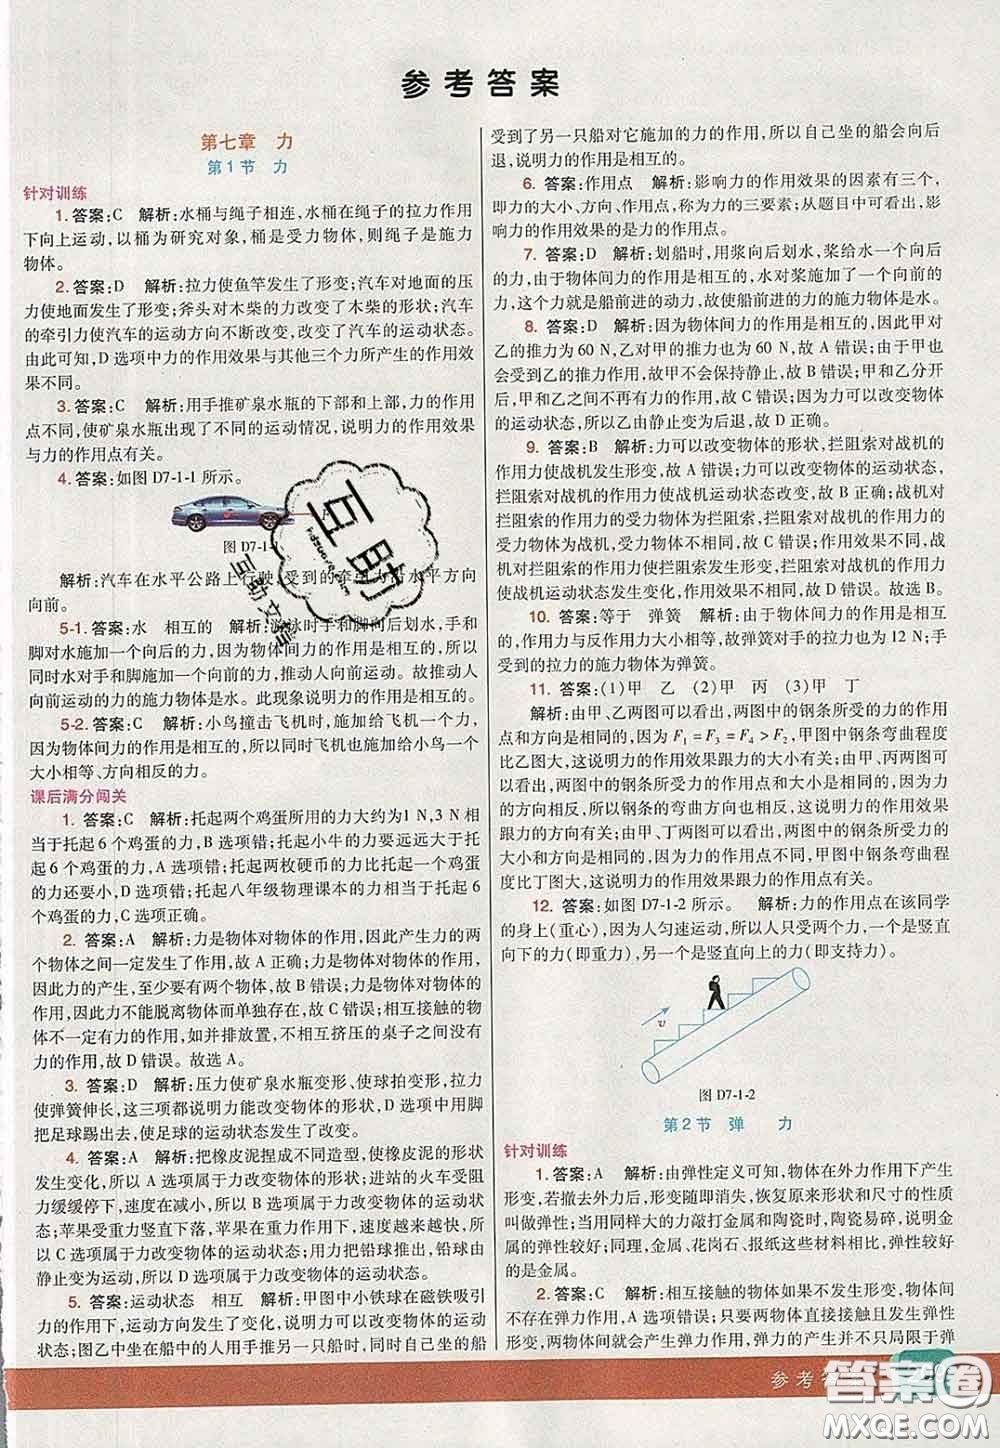 参考答案
第七章 力
第1节 力
针对训练
1. 答案:C 解析:水桶与绳子相连,水桶在绳子的拉力作用
下向上运动,以桶为研究对象,桶是受力物体,则绳子是施力
物体。
2. 答案:D 解析:拉力使鱼竿发生了形变;汽车对地面的压
力使地面发生了形变;斧头对木柴的力改变了木柴的形状;汽车
的牵引力使汽车的运动方向不断改变,改变了汽车的运动状态。
由此可知,D选项中力的作用效果与其他三个力所产生的作用效
果不同。
3. 答案:C 解析:用手推矿泉水瓶的下部和上部,力的作用
点不同,使矿泉水瓶出现了不同的运动情况,说明力的作用效果
与力的作用点有关。
4. 答案:如图 D7-1-1 所示。
图 D7-1-1
解析:汽车在水平公路上行驶,受到的牵引力沿水平方向
向前。
5-1. 答案:水 相互的 解析:游泳时手和脚向后划水,手和
脚对水施加一个向后的力,因为物体间力的作用是相互的,所以
同时水对手和脚施加一个向前的力,推动人向前运动。故推动人
向前运动的力的施力物体是水。此现象说明力的作用是相互的。
5-2. 答案:C 解析:小鸟撞击飞机时,施加给飞机一个力,
因为物体间力的作用是相互的,所以同时飞机也对小鸟施加一个
大小相等、方向相反的力。
课后满分闯关
1. 答案:C 解析:托起两个鸡蛋所用的力大约为1 N,3 N相
当于托起6个鸡蛋的力,B选项错;托起小牛的力要远远大于托
起6个鸡蛋的力,A选项错;托起两枚硬币的力比托起一个鸡蛋
的力还要小,D选项错;托起八年级物理课本的力相当于托起6
个鸡蛋的力,C选项正确。
2. 答案:A 解析:力是物体对物体的作用,因此产生力的两
个物体之间一定发生了作用,故A正确;力是物体对物体的作用,
因此力的产生,至少要有两个物体,故B错误;力是物体对物体的
作用,因此力不能脱离物体而单独存在,故C错误;相互接触的物
体不一定有力的作用,如并排放置、不相互挤压的桌子之间没有
力的作用,故D错误。故选A。
3. 答案:D 解析:压力使矿泉水瓶变形、使球拍变形,拉力
使弹簧伸长,这三项都说明力能改变物体的形状,D选项中用力
把足球踢出去,使足球的运动状态发生了改变。
4. 答案:A 解析:把橡皮泥捏成不同造型,使橡皮泥的形状
发生变化,所以A选项属于力改变物体的形状;进站的火车受阻
力缓缓停下,速度在减小,所以B选项属于力改变物体的运动状
态;苹果受重力竖直下落,苹果在重力作用下,速度越来越快,所
以C选项属于力改变物体的运动状态;用力把铅球推出,铅球由
静止变为运动,所以D选项属于力改变物体的运动状态。
5. 答案:运动状态 相互 解析:甲图中小铁球在磁铁吸引
力的作用下,运动方向发生了变化,说明力可以改变物体的运动
状态;图乙中坐在船中的人用手推另一只船时,同时自己坐的船
受到了另一只船对它施加的力的作用,所以自己坐的船会向后
退,说明力的作用是相互的。
6. 答案:作用点 解析:影响力的作用效果的因素有三个,
即力的大小、方向、作用点,称为力的三要素;从题目中可看出,影
响力的作用效果的是力的作用点。
7. 答案:D 解析:划船时,用桨向后划水,桨给水一个向后
的力,由于物体间力的作用是相互的,水对桨施加了一个向前的
力,这个力就是船前进的动力,故使船前进的力的施力物体是水。
8. 答案:D 解析:因为物体间力的作用是相互的,因此甲对
乙的推力为60 N,乙对甲的推力也为60 N,故A错误;甲和乙同时
受到力的作用,故甲不会保持静止,故B错误;甲和乙分开后,甲
和乙之间不再有力的作用,故C错误;因为力可以改变物体的运
动状态,所以乙由静止变为后退,故D正确。
9. 答案:B 解析:力可以改变物体的形状,拦阻索对战机的
作用力使战机发生形变,故A错误;力可以改变物体的运动状态,
拦阻索对战机的作用力使战机运动状态改变,故B正确;战机对
拦阻索的作用力的受力物体为拦阻索,故C错误;拦阻索受到的
作用力的施力物体为战机,战机使拦阻索发生形变,拦阻索使战
机运动状态发生变化,作用效果不相同,故D错误。故选B。
10. 答案:等于 弹簧 解析:由于物体间力的作用是相互
的,作用力与反作用力大小相等,故弹簧对手的拉力也为12 N;手
受到的拉力的施力物体为弹簧。
11. 答案:(1)甲 乙 (2)甲 丙 (3)甲 丁
解析:由甲、乙两图可以看出,两图中的钢条所受力的作用
点和方向是相同的,因为F₁=F₃=F₄>F₂,甲图中钢条弯曲程度
比乙图大,这说明力的作用效果跟力的大小有关;由甲、丙两图可
以看出,两图中的钢条所受力的作用点和大小是相同的,因为力
的方向相反,所以钢条的弯曲方向也相反,这说明力的作用效果
跟力的方向有关;由甲、丁两图可以看出,两图中钢条所受力的大
小和方向是相同的,因为力的作用点不同,甲图中钢条弯曲程度
比丁图大,说明力的作用效果跟力的作用点有关。
12. 答案:如图 D7-1-2 所示。 解析:力的作用点在该同学
的身上(重心),因为人匀速运动,所以人只受两个力,一个是竖直
向下的力(即重力),另一个是竖直向上的力(即支持力)。
v
图 D7-1-2
第2节 弹 力
针对训练
1. 答案:A 解析:由弹性定义可知,物体在外力作用下产生
形变,若撤去外力,形变随即消失,恢复原来形状和尺寸的性质
叫做弹性;当用同样大的力敲打金属和陶瓷时,陶瓷易碎,说明
金属的弹性较好;同理,金属、花岗石、报纸这些材料相比,弹性较好的
是金属。
2. 答案:C 解析:相互接触的物体如果不发生形变,物体间
不存在弹力作用,A选项错误;只要两物体直接接触且发生弹性
形变,两物体间就会产生弹力作用,弹力的产生并不只局限于弹
参考答
互助
互助文档
答案圈
MXQE.COM